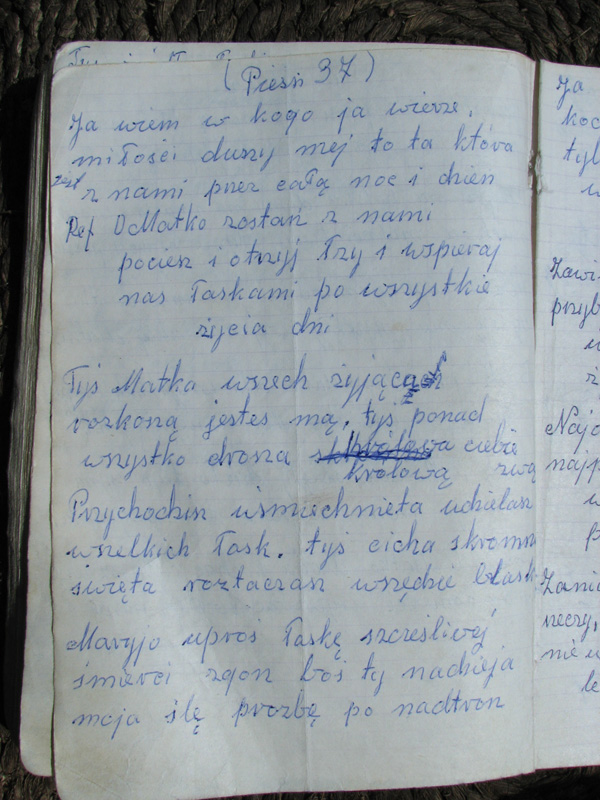 (Pieśń 37)
Ja wiem w kogo ja wierze,
miłości duszy mej to ta która
jest z nami przez całą noc i dzień
Ref O Matko zostań z nami
pociesz i otrzyj łzy i wspieraj
nas łaskami po wszystkie
życia dni
Tyś Matka wszech żyjąca
rozkoszą jestes mą, tyś ponad
wszystko drosza ciebie
królową zwą
Przychodzisz uśmiechnięta udzielasz
wszelkich łask. tyś cicha skromna
święta roztaczasz wszędzie blask
Maryjo uproś łaskę szczęśliwej
śmierci zgon boś ty nadzieja
moja ślę prozbę po nadtron
Ja
koc
tyl
Zawi
przyb
Najd
najp
Zanic
rzeczy,
nie u
le